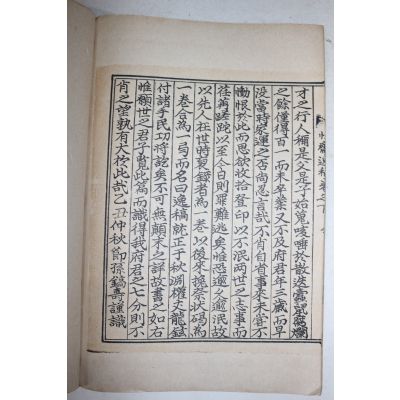 才之行人稱是父是子始蒐咳唾於散逸
之餘僅得百一而未卒業又不及府君年三歲而早
沒當時家運之否尙忍言哉不肖自省事來未嘗不
慟恨於此而思欲收拾登印以不泯兩世之志事而
荏苒蹉跎以至今日則罪難逃矣惟恐逾久逾泯故
以先人在世時裒錄者爲一卷以後來搜奈狀碣爲
一卷合爲一局而名曰逸稿就正于秋淵權丈龍鉉
付諸手民功將訖矣不可無顚末之詳故書之如右
惟願世之君子覽此篇而識得我府君之七分則不
肖之望孰有大於此哉己丑仲秋節孫鎬壽謹識